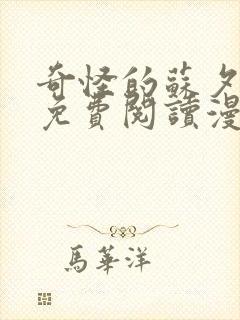 奇怪的蘇夕
免費閱讀漫
馬華洋